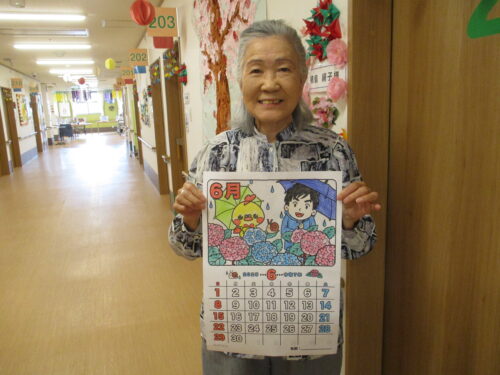 203
202
201
2
6月
6
1 2 3 4 5 6 7
8 9 10 11 12 13 14
15 16 17 18 19 20 21
22 23 24 25 26 27 28
29 30